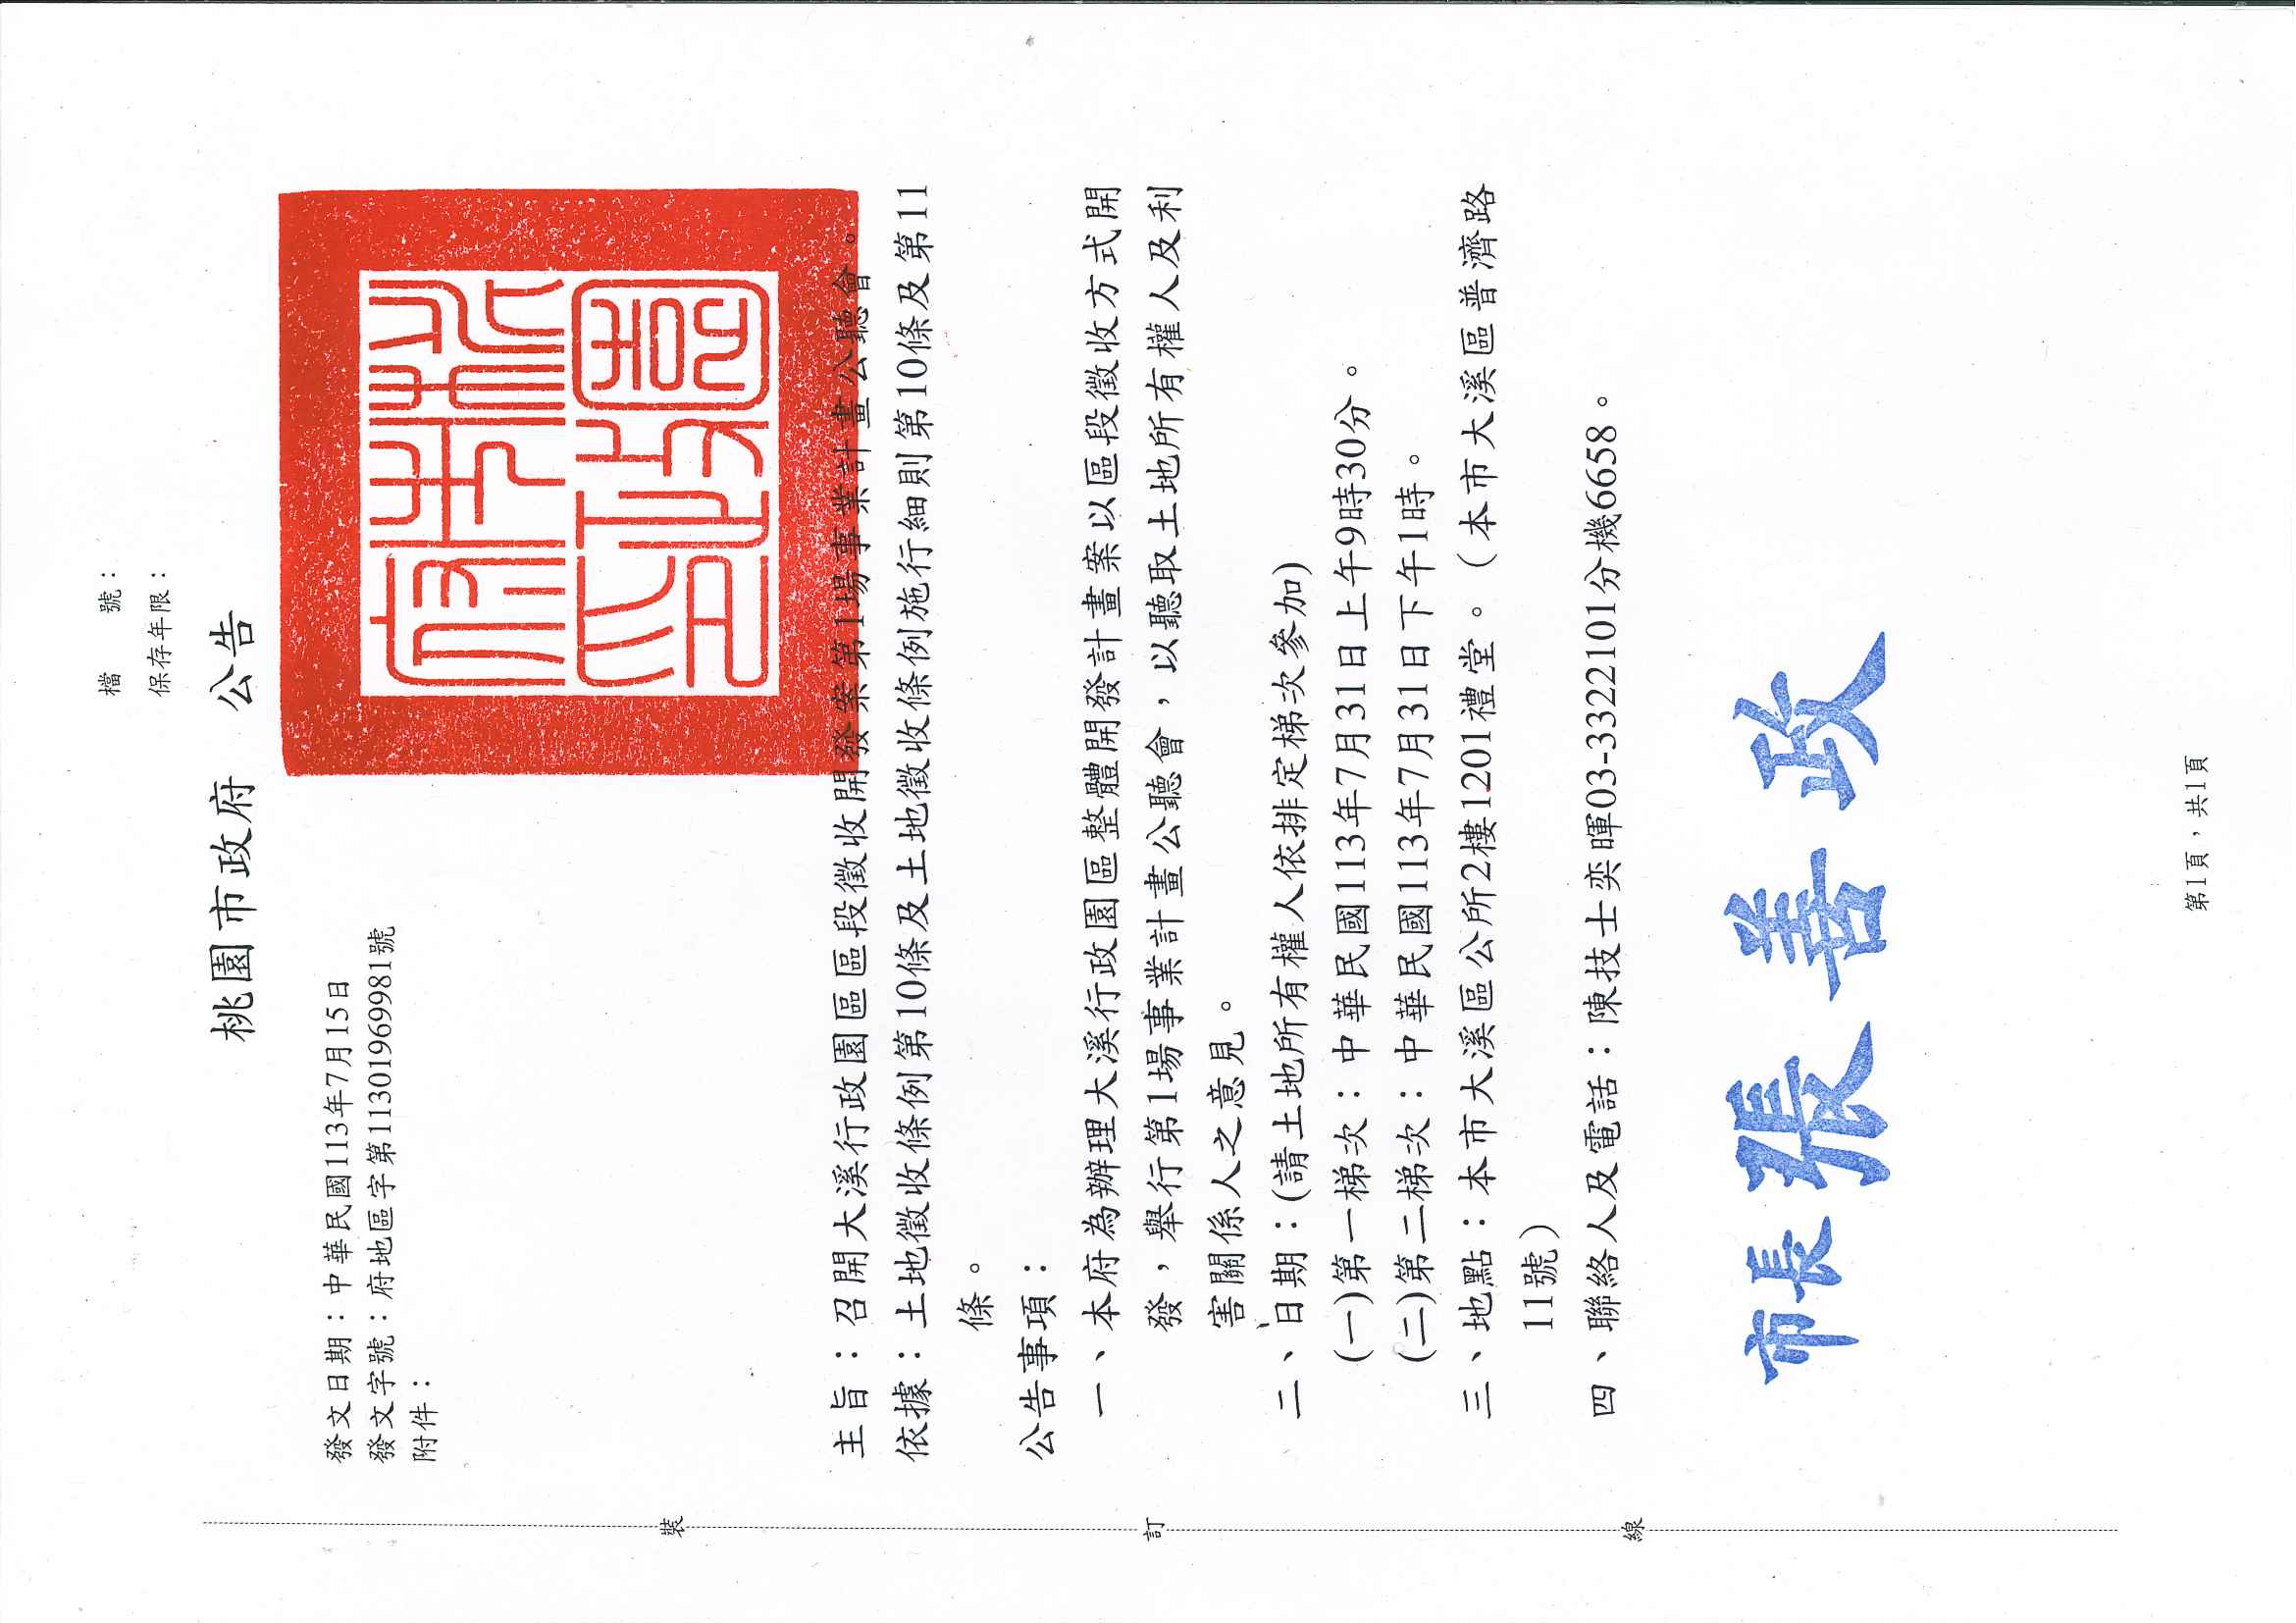 檔　　號：
保存年限：
桃園市政府　公告
發文日期：中華民國113年7月15日
發文字號：府地區字第11301969981號
附件：
桃園市政府印
主旨：召開大溪行政園區區段徵收開發案第1場事業計畫公聽會。
依據：土地徵收條例第10條及土地徵收條例施行細則第10條及第11
條。
公告事項：
一、本府為辦理大溪行政園區整體開發計畫案以區段徵收方式開
發，舉行第1場事業計畫公聽會，以聽取土地所有權人及利
害關係人之意見。
二、日期：(請土地所有權人依排定梯次參加)
(一)第一梯次：中華民國113年7月31日上午9時30分。
(二)第二梯次：中華民國113年7月31日下午1時。
三、地點：本市大溪區公所2樓1201禮堂。（本市大溪區普濟路
11號）
四、聯絡人及電話：陳技士奕暉03-3322101分機6658。
市長張善政
裝
訂
線
第1頁，共1頁